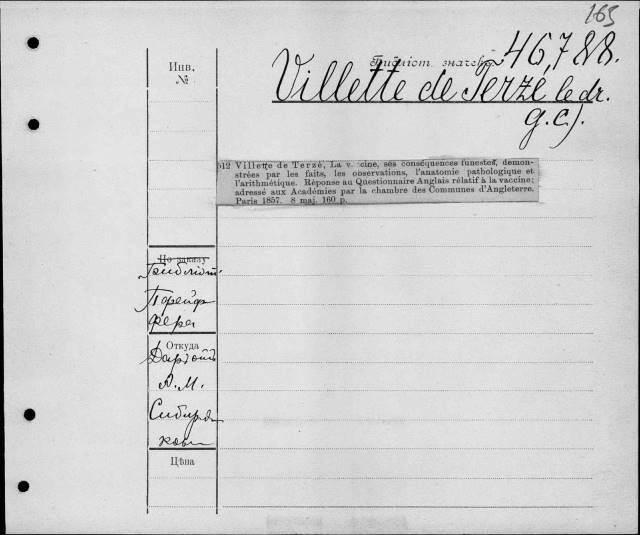 165
Инв.
№
46,788.
Villette de Terzé, le dr.
g.c).
512 Villette de Terzé, La v. cine, ses conséquences funestes, démon-
strées par les faits, les observations, l'anatomie pathologique et
l'arithmétique. Réponse au Questionnaire Anglais rélatif à la vaccine;
adressé aux Académies par la chambre des Communes d'Angleterre.
Paris 1857. 8 maj. 160 p.
По заказу
Библiот.
Пфейф
фера
Откуда
А. М.
Сибиря
кова
Цѣна